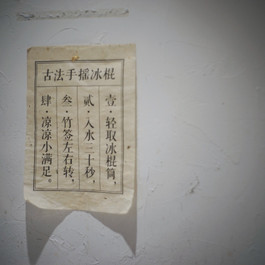 古法手摇冰棍
壹·轻取冰棍筒，
贰·入水三十秒，
叁·竹签左右转，
肆·凉凉小满足。